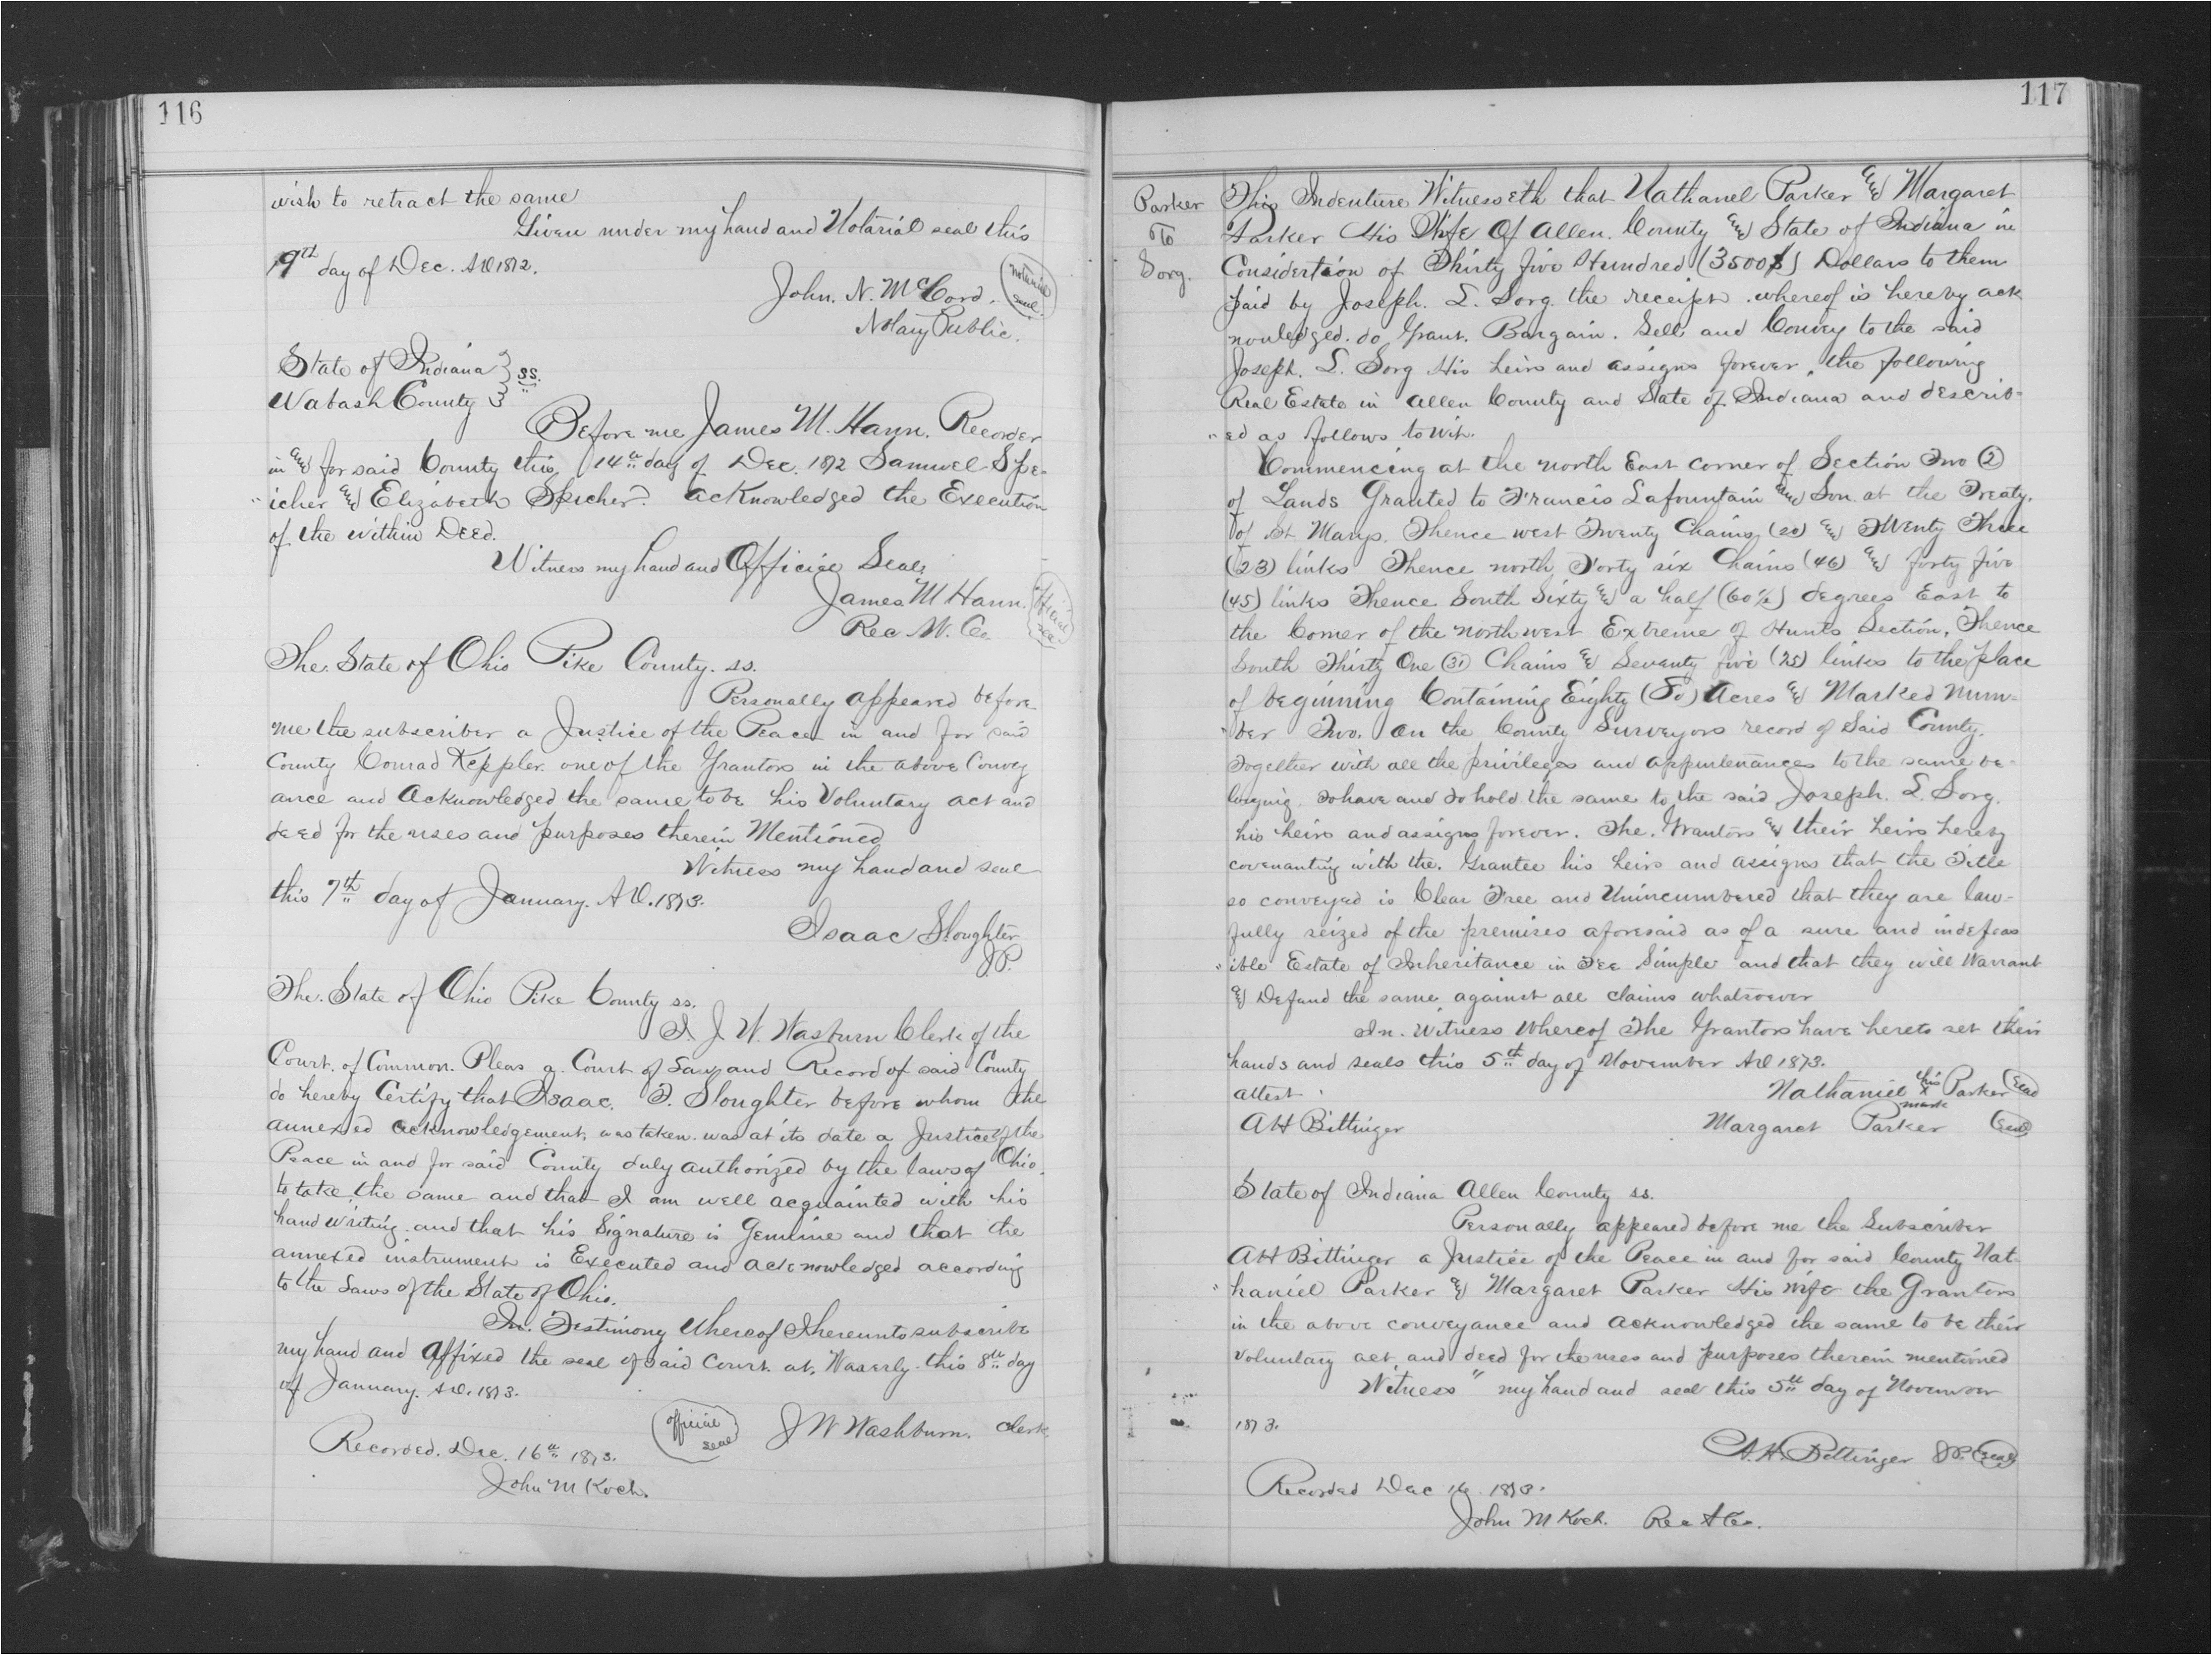 116
wish to retract the same
Given under my hand and Notarial seal this
19th day of Dec. AD 1872.
John. N. McCord.
Notarial seal.
Notary Public.
State of Indiana } ss.
Wabash County }
Before me James M. Hann. Recorder
in & for said County this 14th day of Dec. 1872 Samuel Spe-
"icher & Elizabeth Spicher. acknowledged the Execution
of the within Deed.
Witness my hand and Official Seal
James M Hann.
Official seal
Rec W. Co.
The. State of Ohio Pike County. ss.
Personally appeared before
me the subscriber a Justice of the Peace in and for said
County Conrad Keppler. one of the Grantors in the above Convey
ance and Acknowledged the same to be his Voluntary act and
deed for the uses and purposes therein Mentioned
Witness my hand and seal
this 7th day of January. AD. 1873.
Isaac Sloughter
JP.
The. State of Ohio Pike County ss.
I. J. W. Wasburn Clerk of the
Court. of Common. Pleas a. Court of Law and Record of said County
do hereby Certify that Isaac. T. Sloughter before whom the
annexed acknowledgement, was taken. was at its date a Justice of the
Peace in and for said County duly authorized by the laws of Ohio.
to take the same and that I am well acquainted with his
hand writing. and that his Signature is Genuine and that the
annexed instrument is Executed and acknowledged according
to the Laws of the State of Ohio.
In. Testimony Whereof I hereunto subscribe
my hand and affixed the seal of said Court. at. Waverly. this 8th day
of January. AD. 1873.
official seal
J W Washburn. Clerk.
Recorded. Dec. 16th 1873.
John M Koch.
117
Parker
To
Sorg.
This Indenture Witnesseth that Nathanel Parker & Margaret
Parker His Wife Of Allen. County & State of Indiana in
Considertion of Thirty five Hundred (3500$) Dollars to them
paid by Joseph. L. Sorg. the receipt. whereof is hereby ack
nouledged. do Grant. Bargain. Sell and Convey to the said
Joseph. L. Sorg His heirs and assigns forever, the following
Real Estate in Allen County and State of Indiana and describ-
"ed as follows to wit.
Commencing at the north East corner of Section Two (2)
of Lands Granted to Francis Lafountain & Son. at the Treaty.
of St Marys. Thence west Twenty Chains (20) & Twenty Three
(23) links Thence north Forty six Chains (46) & forty five
(45) links Thence South Sixty & a half (60½) degrees East to
the Corner of the north west Extreme of Hunts Section, Thence
South Thirty One (31) Chains & Seventy five (25) links to the place
of beginning Containing Eighty (80) Acres & Marked Num-
"ber Two. On the County Surveyors record of Said County.
Together with all the privileges and appurtenances to the same be-
longing. To have and to hold the same to the said Joseph. L. Sorg.
his heirs and assigns forever. The. Grantors & their heirs hereby
covenanting with the. Grantee his heirs and assigns that the Title
so conveyed is Clear Free and Unincumbered that they are law-
fully seized of the premises aforesaid as of a sure and indefeas
"ible Estate of Inheritance in Fee Simple and that they will Warrant
& Defend the same against all claims whatsoever
In. Witness Whereof The Grantors have hereto set their
hands and seals this 5th day of November AD 1873.
attest.
Nathaniel his x mark Parker Seal
AH Bittinger
Margaret Parker Seal
State of Indiana Allen County ss.
Personally appeared before me the Subscriber
AH Bittinger a Justice of the Peace in and for said County Nat-
"haniel Parker & Margaret Parker His wife the Grantors
in the above conveyance and acknowledged the same to be their
voluntary act, and deed for the uses and purposes therein mentioned
Witness" my hand and seal this 5th day of November
1873.
A. H. Bittinger JP. Seal
Recorded Dec 16. 1873.
John M Koch. Rec A Co.